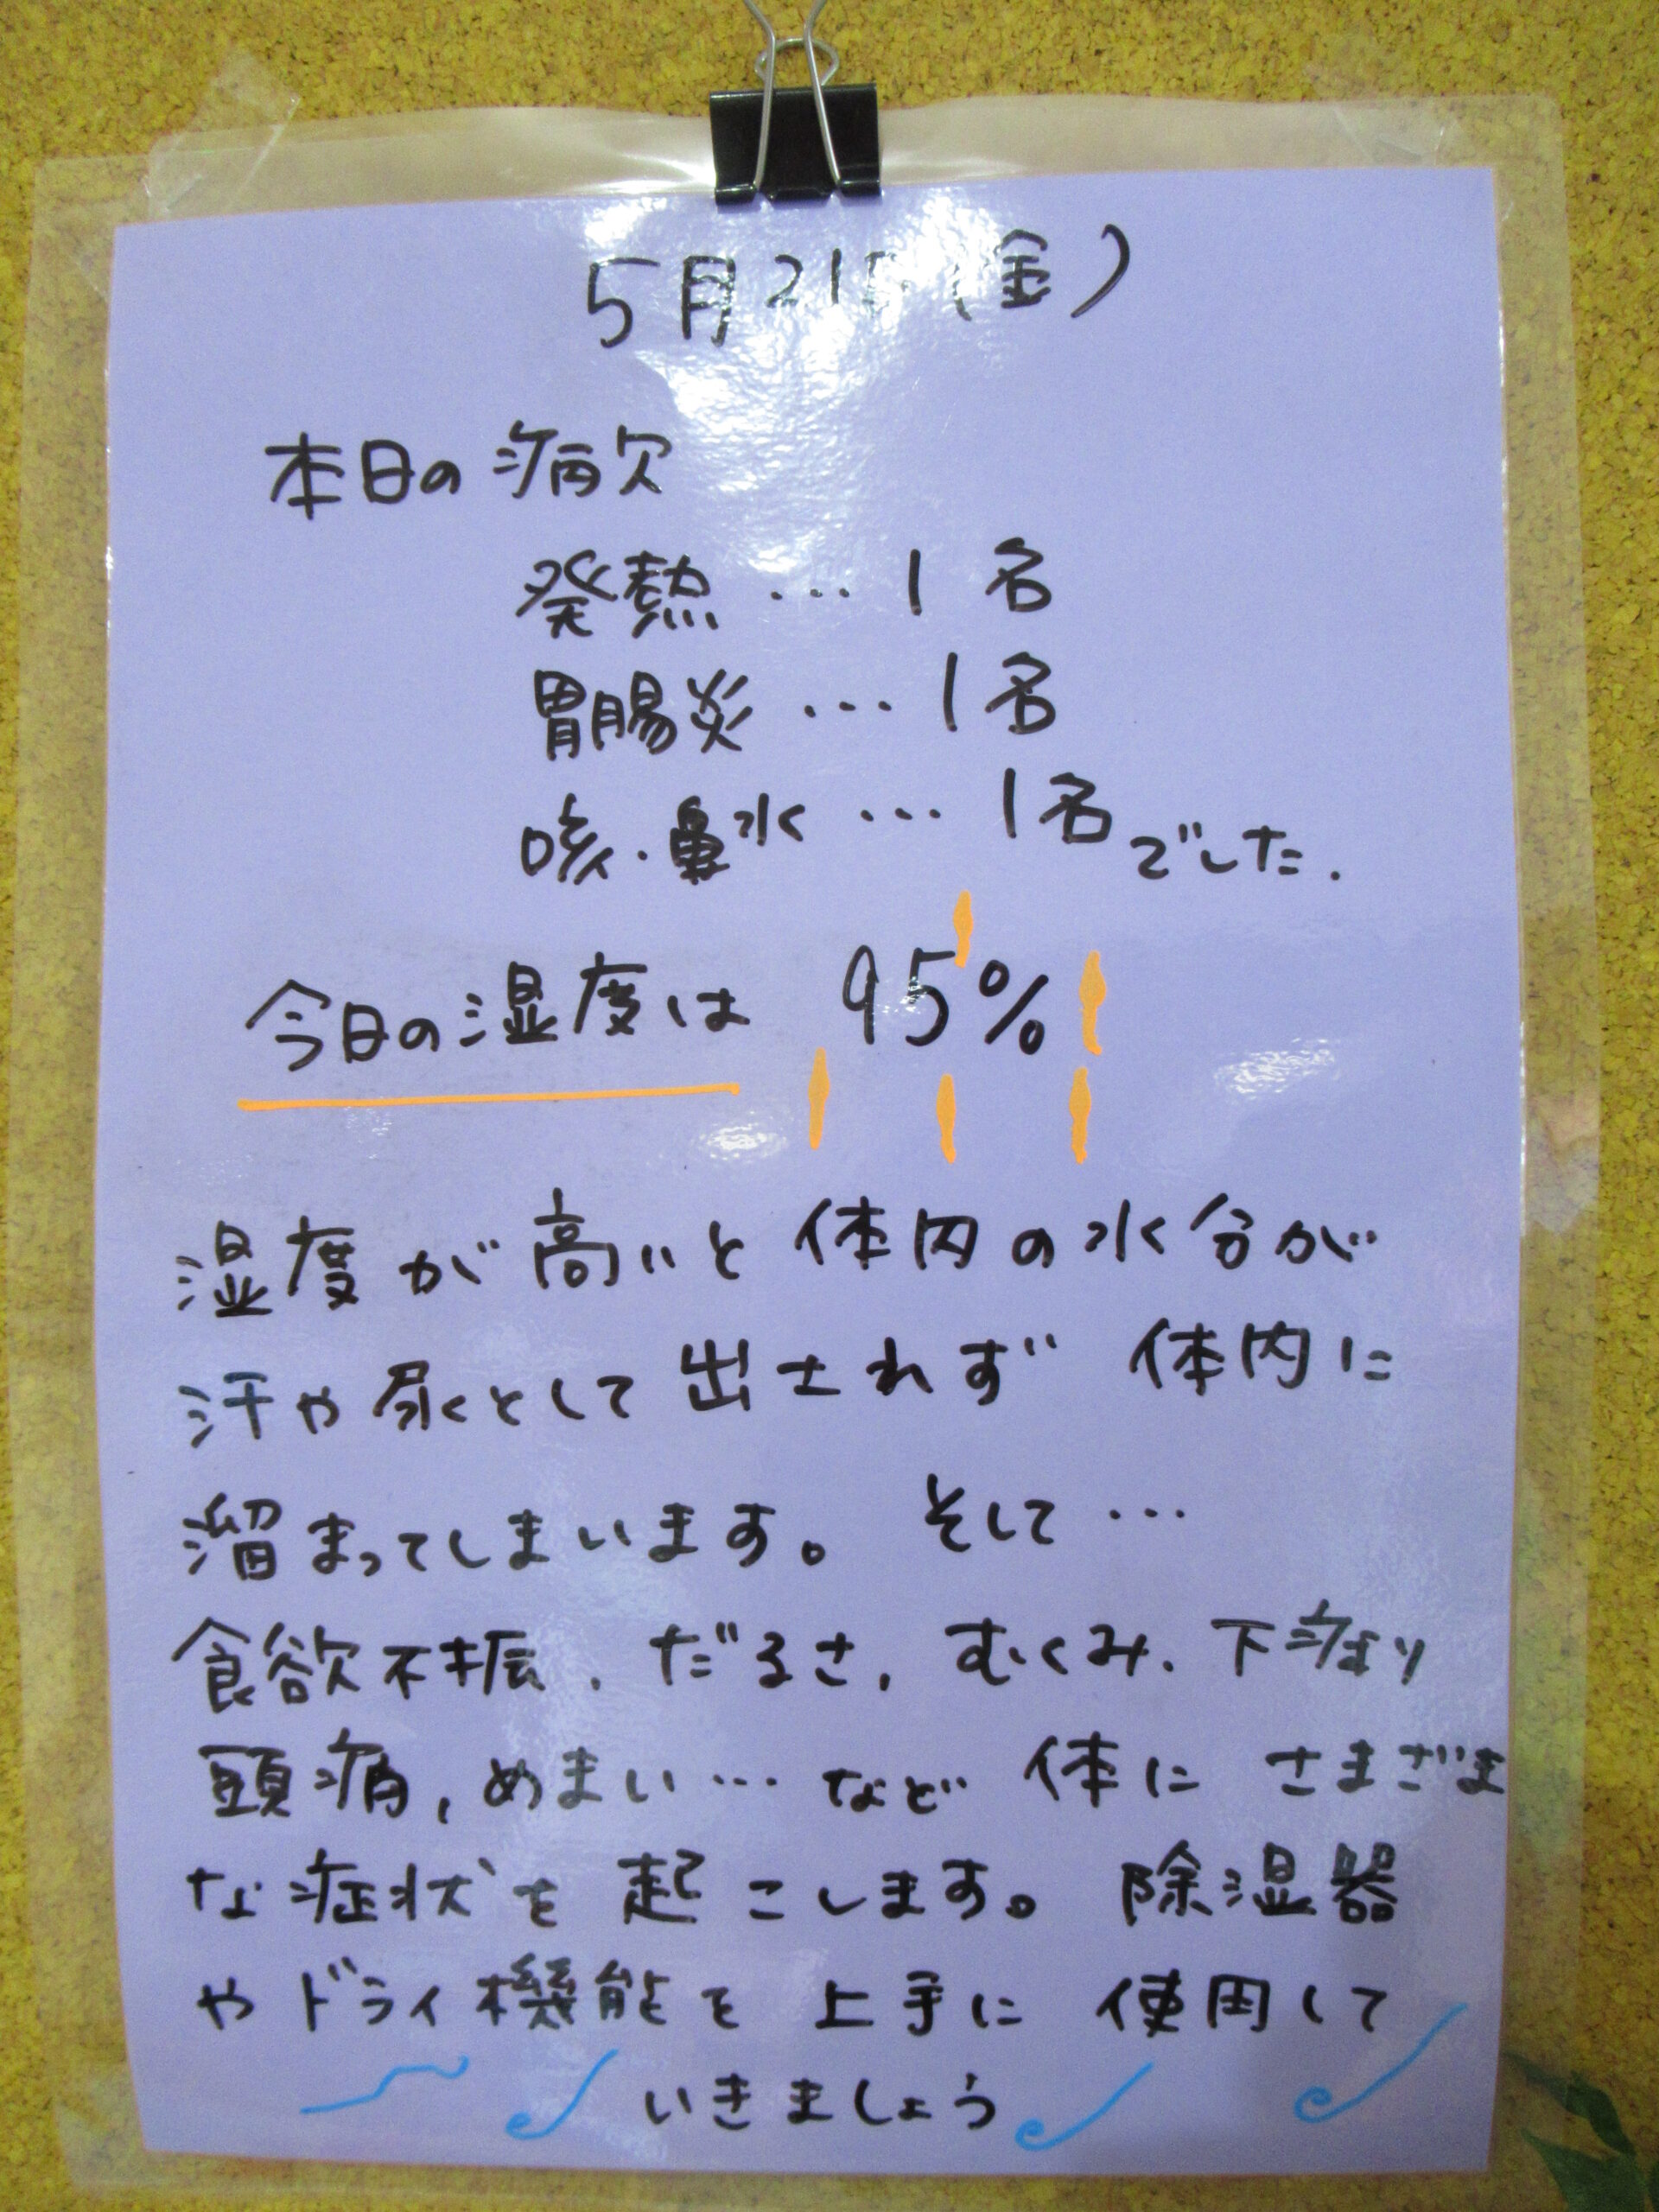 5月21日(金)
本日の病欠
発熱…1名
胃腸炎…1名
咳・鼻水…1名でした.
今日の湿度は 95%
湿度が高いと体内の水分が
汗や尿として出されず 体内に
溜まってしまいます。そして…
食欲不振、だるさ、むくみ、下痢り
頭痛,めまい…など 体に さまざま
な症状を起こします。除湿器
やドライ機能を上手に 使用して
いきましょう